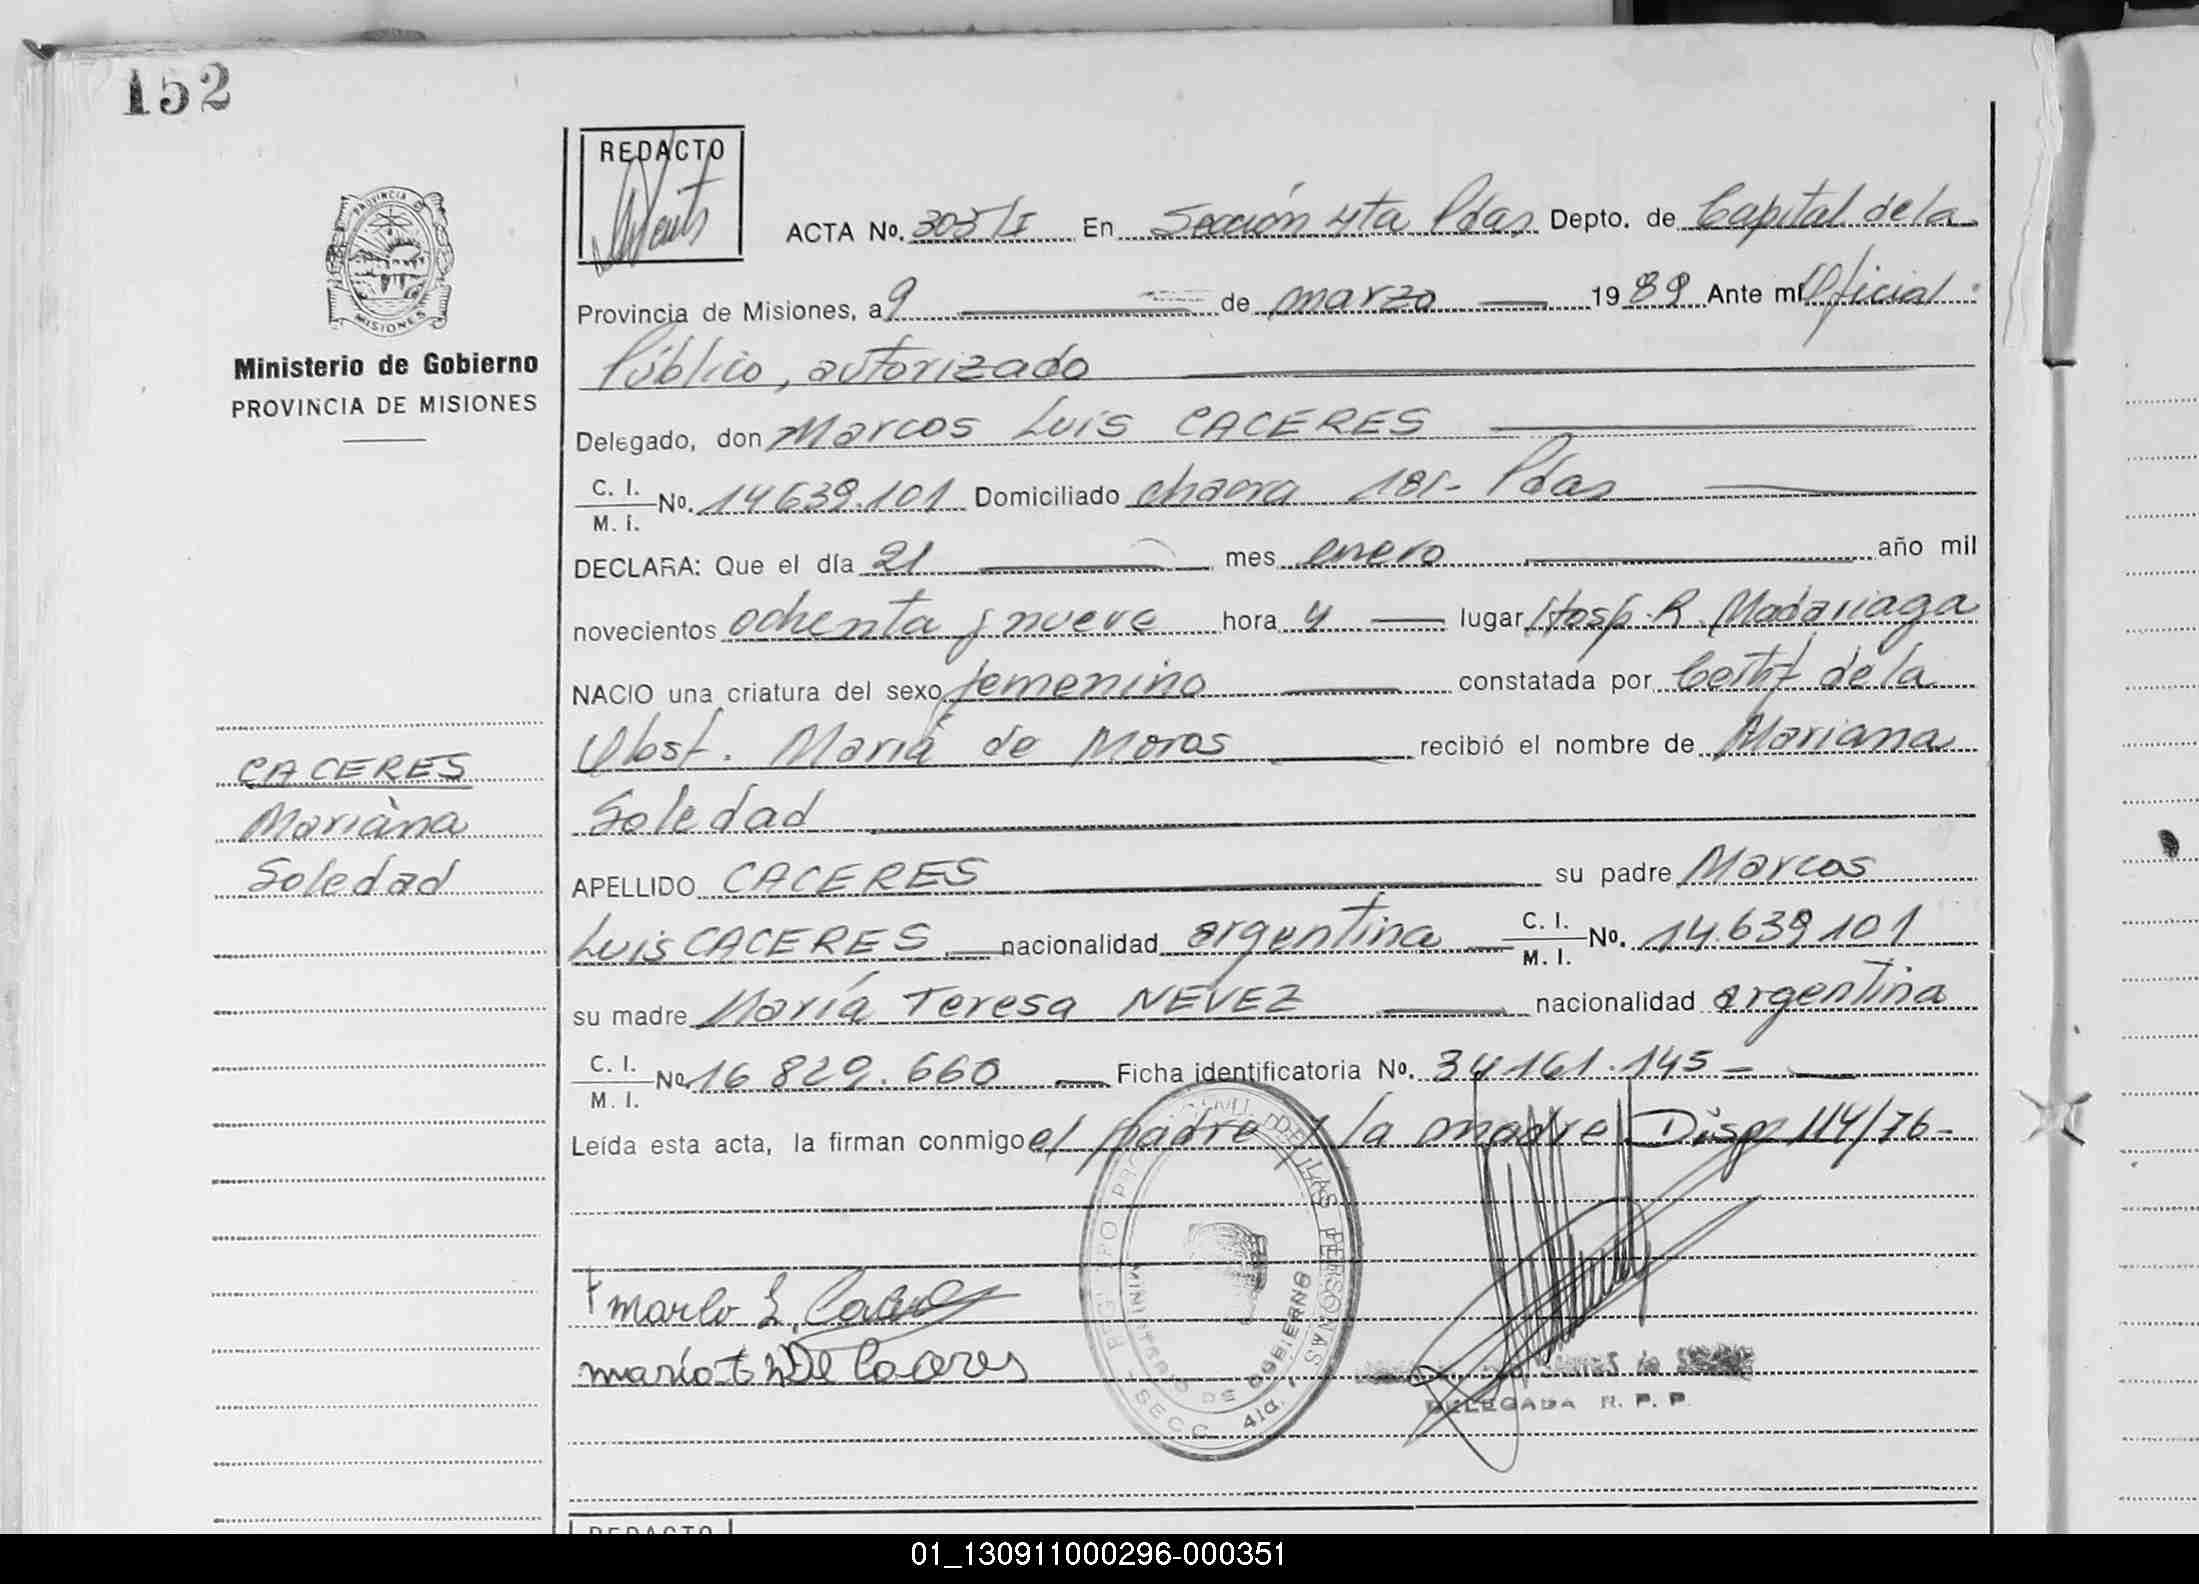 152
REDACTO
PROVINCIA DE
MISIONES
Ministerio de Gobierno
PROVINCIA DE MISIONES
ACTA No. 305/I En Sección 4ta Pdas Depto. de Capital de la
Provincia de Misiones, a 9 de marzo 1989 Ante mí Oficial
Público, autorizado
Delegado, don Marcos Luis CACERES
C. I.
M. I. No. 14 639.101 Domiciliado chacra 181- Pdas
DECLARA: Que el día 21 mes enero año mil
novecientos ochenta y nueve hora 4 lugar Hosp. R. Madariaga
NACIO una criatura del sexo femenino constatada por Certif de la
Obst. María de Moros recibió el nombre de Mariana
Soledad
CACERES
Mariana
Soledad
APELLIDO CACERES su padre Marcos
Luis CACERES nacionalidad argentina C. I.
M. I. No. 14.639 101
su madre María Teresa NEVEZ nacionalidad argentina
C. I.
M. I. No. 16 829.660 Ficha identificatoria No. 34 161.145-
Leída esta acta, la firman conmigo el padre y la madre Disp 114/76-
DE LAS PERSONAS
MINISTERIO DE GOBIERNO
SECC. 4ta.
DELEGADA R. P. P.
REDACTO
01_130911000296-000351